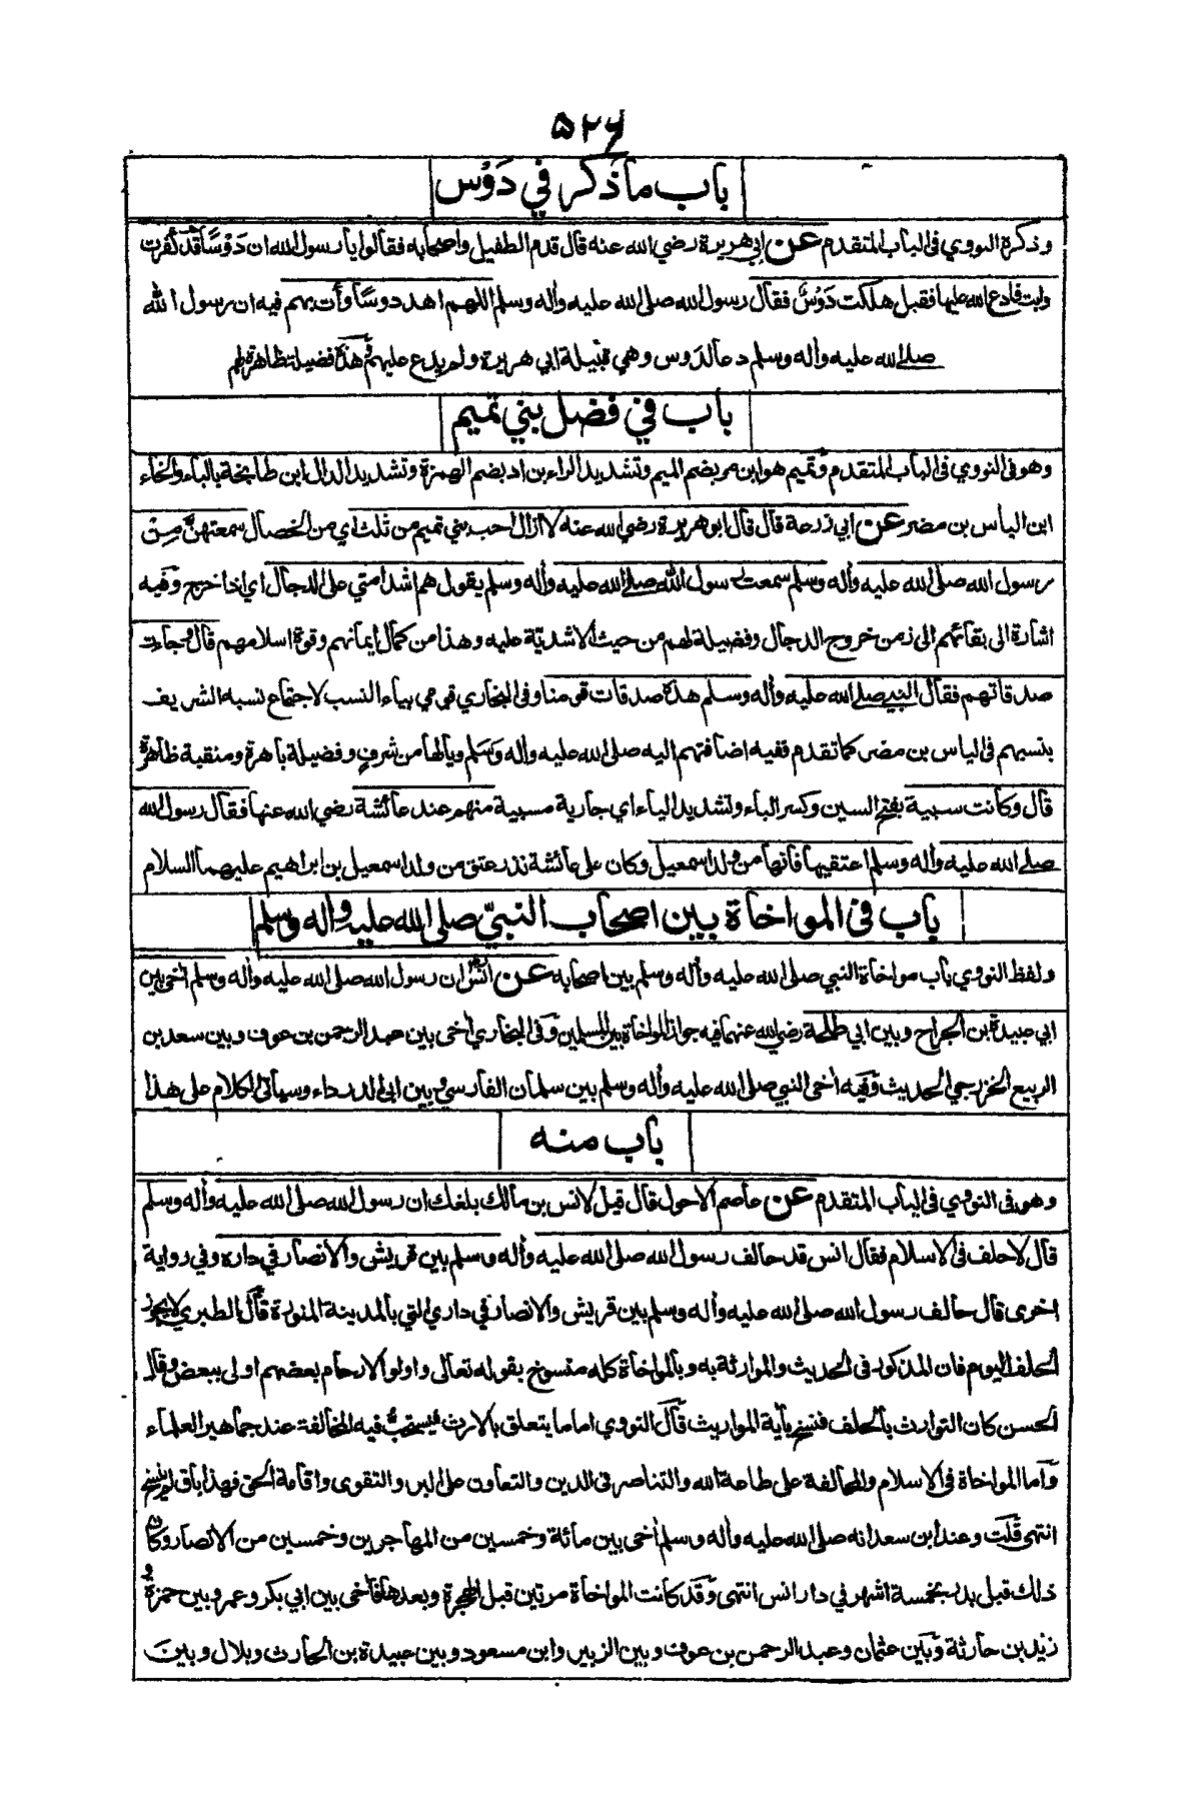 ۵۲۶
باب ما ذكر في دَوْس
وذكره النووي في الباب المتقدم عن ابي هريرة رضي الله عنه قال قدم الطفيل واصحابه فقالوا يا رسول الله ان دَوْسًا قد كفرت
وابت فادع الله عليها فقيل هلكت دَوْسٌ فقال رسول الله صلى الله عليه واله وسلم اللهم اهد دوسًا وأت بهم فيه ان رسول الله
صلى الله عليه واله وسلم دعا لدوس وهي قبيلة ابي هريرة ولم يدع عليهم وهذه فضيلة ظاهرة لهم
باب في فضل بني تميم
وهو في النووي في الباب المتقدم وتميم هو ابن مر بضم الميم وتشديد الراء بن اد بضم الهمزة وتشديد الدال ابن طابخة بالباء والخاء
ابن الياس بن مضر عن ابي زرعة قال قال ابو هريرة رضي الله عنه لا ازال احب بني تميم من ثلث اي من الخصال سمعتهن من
رسول الله صلى الله عليه واله وسلم سمعت رسول الله صلى الله عليه واله وسلم يقول هم اشد امتي على الدجال اي اذا خرج وفيه
اشارة الى بقائهم الى زمن خروج الدجال وفضيلة لهم من حيث الاشدية عليه وهذا من كمال ايمانهم وقوة اسلامهم قال وجاءت
صدقاتهم فقال النبي صلى الله عليه واله وسلم هذه صدقات قومنا وفي البخاري قومي بياء النسب لاجتماع نسبه الشريف
بنسبهم في الياس بن مضر كما تقدم ففيه اضافتهم اليه صلى الله عليه واله وسلم ويالها من شرف وفضيلة باهرة ومنقبة ظاهرة
قال وكانت سبية بفتح السين وكسر الباء وتشديد الياء اي جارية مسبية منهم عند عائشة رضي الله عنها فقال رسول الله
صلى الله عليه واله وسلم اعتقيها فانها من ولد اسمعيل وكان على عائشة نذر عتق من ولد اسمعيل بن ابراهيم عليهما السلام
باب في المواخاة بين اصحاب النبيّ صلى الله عليه واله وسلم
ولفظ النووي باب مواخاة النبي صلى الله عليه واله وسلم بين اصحابه عن انس ان رسول الله صلى الله عليه واله وسلم اخى بين
ابي عبيدة بن الجراح وبين ابي طلحة رضي الله عنهما فيه جواز المواخاة بين المسلمين وفي البخاري اخى بين عبد الرحمن بن عوف وبين سعد بن
الربيع الخزرجي الحديث وفيه اخى النبي صلى الله عليه واله وسلم بين سلمان الفارسي وبين ابي الدرداء وسياتي الكلام على هذا
باب منه
وهو في النووي في الباب المتقدم عن عاصم الاحول قال قيل لانس بن مالك بلغك ان رسول الله صلى الله عليه واله وسلم
قال لا حلف في الاسلام فقال انس قد حالف رسول الله صلى الله عليه واله وسلم بين قريش والانصار في داره وفي رواية
اخرى قال حالف رسول الله صلى الله عليه واله وسلم بين قريش والانصار في داري التي بالمدينة المنورة قال الطبري لا يجوز
الحلف اليوم فان المذكور في الحديث والموارثة به وبالمواخاة كله منسوخ بقوله تعالى واولو الارحام بعضهم اولى ببعض وقال
الحسن كان التوارث بالحلف فنسخ بأية المواريث قال النووي اما ما يتعلق بالارث فيستحب فيه المخالفة عند جماهير العلماء
واما المواخاة في الاسلام والمحالفة على طاعة الله والتناصر في الدين والتعاون على البر والتقوى واقامة الحق فهذا باق لم ينسخ
انتهى قلت وعند ابن سعد انه صلى الله عليه واله وسلم اخى بين مائة وخمسين من المهاجرين وخمسين من الانصار وكان
ذلك قبل بدر بخمسة اشهر في دار انس انتهى وقد كانت المواخاة مرتين قبل الهجرة وبعدها فاخى بين ابي بكر وعمر وبين حمزة و
زيد بن حارثة وبين عثمان وعبد الرحمن بن عوف وبين الزبير وابن مسعود وبين عبيدة بن الحارث وبلال وبين